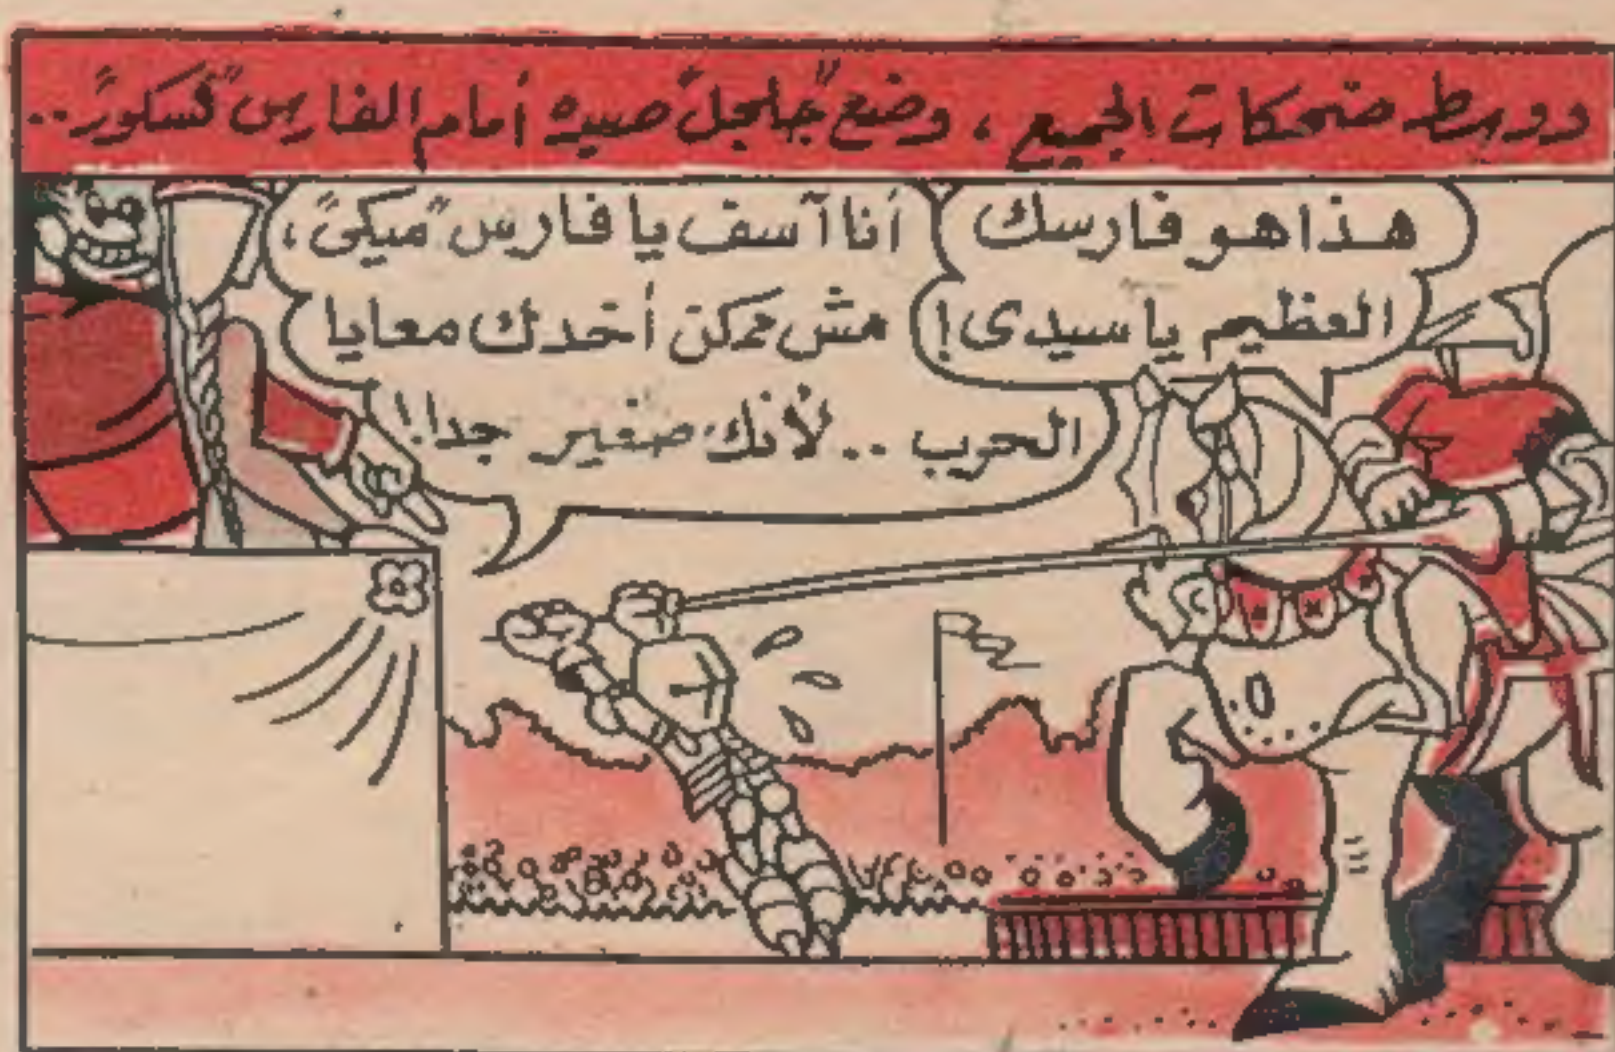 ووسط ضحكات الجميع ، وضع "جلجل" صيده أمام الفارس "كسكور" ..
هذا هو فارسك
العظيم يا سيدى !
أنا آسف يا فارس "ميكى" ،
مش ممكن أخدك معايا
الحرب .. لأنك صغير جدا !